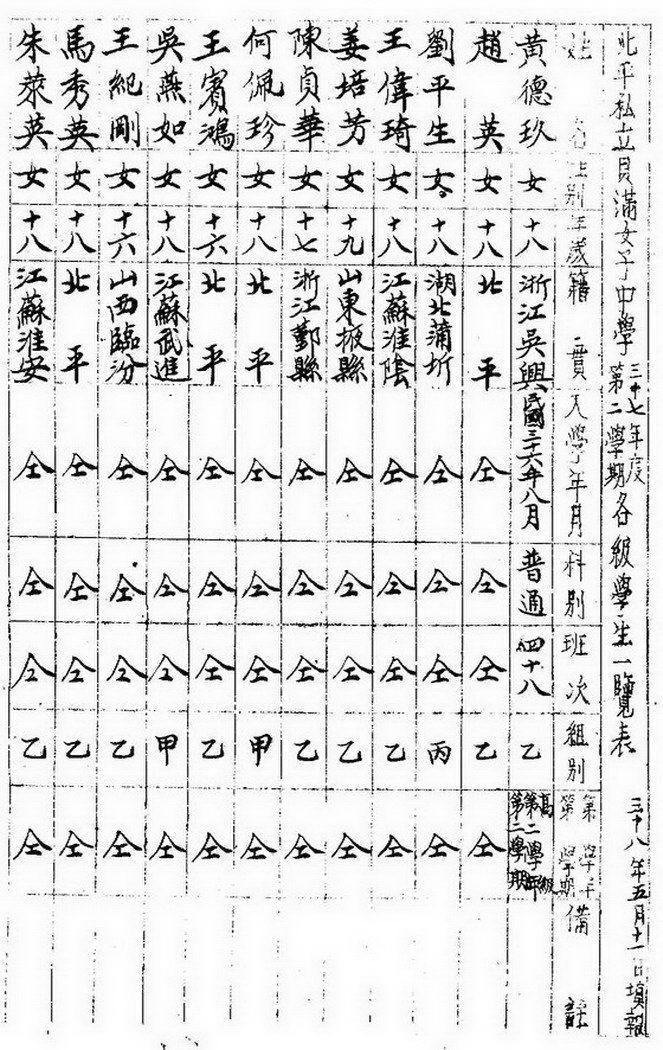 北平私立貝滿女子中學三十七年度第二學期各級學生一覽表 三十八年五月十一日填報
姓名 性別 年歲 籍貫 入學年月 科別 班次 組別 第 學年第 學期 備註
黃德玖 女 十八 浙江吳興 民國三十六年八月 普通 四十八 乙 高級第二學年第二學期
趙英 女 十八 北平 仝 仝 仝 乙 仝
劉平生 女 十八 湖北蒲圻 仝 仝 仝 丙 仝
王偉琦 女 十八 江蘇淮陰 仝 仝 仝 乙 仝
姜培芳 女 十九 山東掖縣 仝 仝 仝 乙 仝
陳貞華 女 十七 浙江鄞縣 仝 仝 仝 乙 仝
何佩珍 女 十八 北平 仝 仝 仝 甲 仝
王賓鴻 女 十六 北平 仝 仝 仝 乙 仝
吳燕如 女 十八 江蘇武進 仝 仝 仝 甲 仝
王紀剛 女 十六 山西臨汾 仝 仝 仝 乙 仝
馬秀英 女 十八 北平 仝 仝 仝 乙 仝
朱萊英 女 十八 江蘇淮安 仝 仝 仝 乙 仝